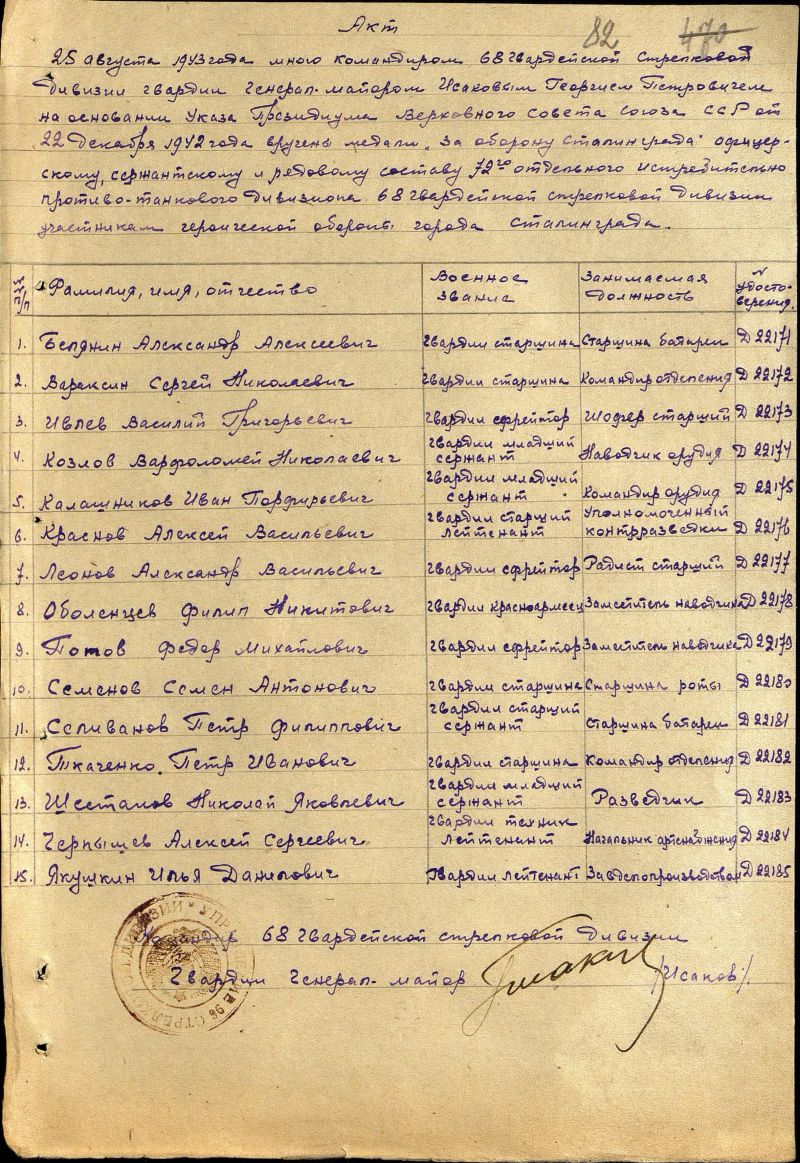 Акт
82 470
25 августа 1943 года мною командиром 68 Гвардейской Стрелковой
Дивизии Гвардии Генерал-майором Исаковым Георгием Петровичем
на основании Указа Президиума Верховного Совета Союза ССР от
22 Декабря 1942 года вручены медали „За оборону Сталинграда" офицер-
скому, сержантскому и рядовому составу 72го отдельного истребительно
противо-танкового Дивизиона 68 Гвардейской Стрелковой Дивизии
участникам героической обороны города Сталинграда.
№№ п/п Фамилия, имя, отчество Военное звание Занимаемая должность № удосто-верения
1. Белянин Александр Алексеевич Гвардии старшина Старшина батареи Д 22171
2. Вараксин Сергей Николаевич Гвардии старшина Командир отделения Д 22172
3. Ивлев Василий Григорьевич Гвардии ефрейтор Шофер старший Д 22173
4. Козлов Варфоломей Николаевич Гвардии младший сержант Наводчик орудия Д 22174
5. Калашников Иван Порфирьевич Гвардии младший сержант Командир орудия Д 22175
6. Краснов Алексей Васильевич Гвардии старший лейтенант Уполномоченный контрразведки Д 22176
7. Леонов Александр Васильевич Гвардии ефрейтор Радист старший Д 22177
8. Оболенцев Филип Никитович Гвардии красноармеец Заместитель наводчика Д 22178
9. Попов Федор Михайлович Гвардии ефрейтор Заместитель наводчика Д 22179
10. Семенов Семен Антонович Гвардии старшина Старшина роты Д 22180
11. Селиванов Петр Филиппович Гвардии старший сержант Старшина батареи Д 22181
12. Ткаченко Петр Иванович Гвардии старшина Командир отделения Д 22182
13. Шестапов Николай Яковлевич Гвардии младший сержант Разведчик Д 22183
14. Чернышев Алексей Сергеевич Гвардии техник лейтенант Начальник артснабжения Д 22184
15. Якушкин Илья Данилович Гвардии лейтенант Завделопроизводством Д 22185
Командир 68 Гвардейской стрелковой Дивизии
Гвардии Генерал-майор /Исаков/.
УПРАВЛЕНИЕ 96 СТРЕЛКОВОЙ ДИВИЗИИ